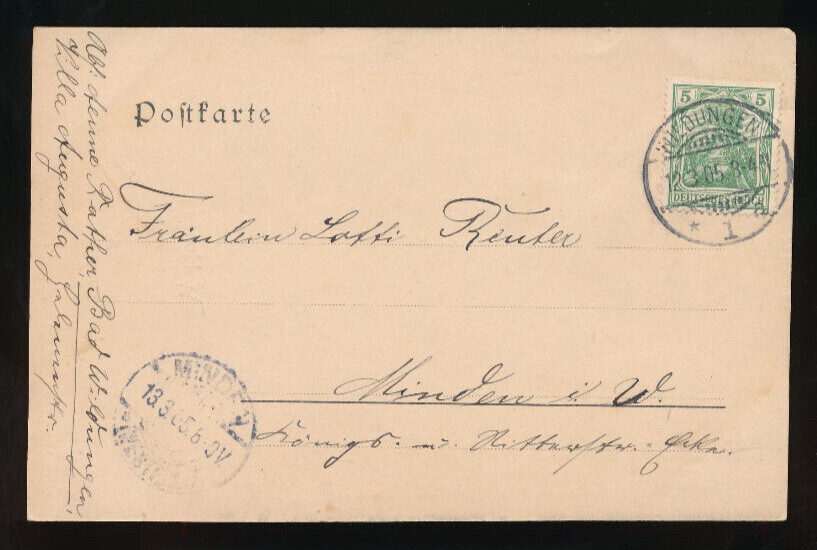 Postkarte
5 5
DEUTSCHES REICH
WILDUNGEN
12.3.05.8-9N
* 1
Fräulein Lotti Reuter
Minden i W.
Königs- u. Ritterstr.-Ecke.
MINDEN
13.3.05.8-9V.
(WESTF.)
Abs: Henne Rather, Bad Wildungen,
Villa Augusta,